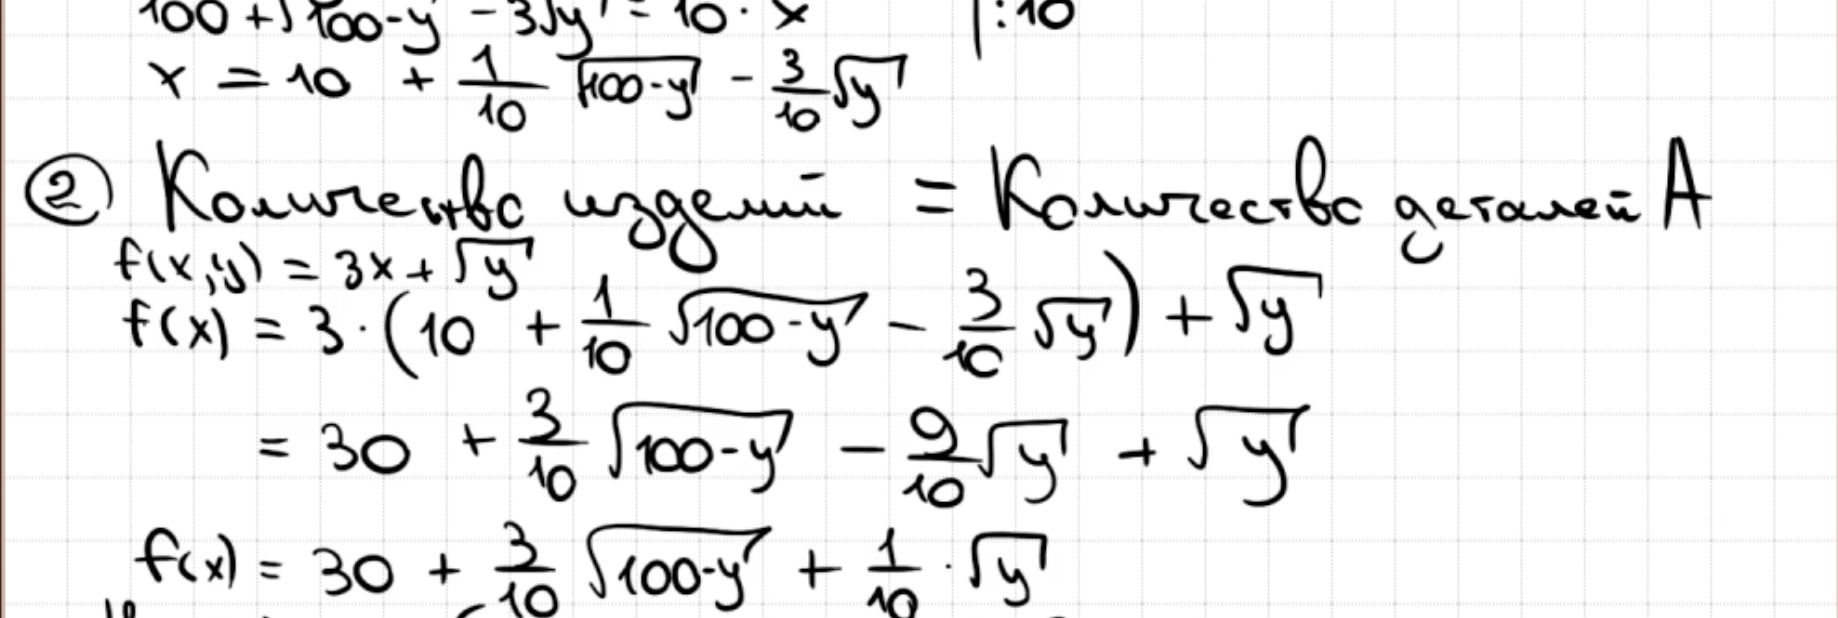 100 + √(100-y) - 3√y = 10 · x | :10
x = 10 + 1/10 √(100-y) - 3/10 √y
② Количество изделий = Количество деталей А
f(x,y) = 3x + √y
f(x) = 3 · (10 + 1/10 √(100-y) - 3/10 √y) + √y
= 30 + 3/10 √(100-y) - 9/10 √y + √y
f(x) = 30 + 3/10 √(100-y) + 1/10 · √y